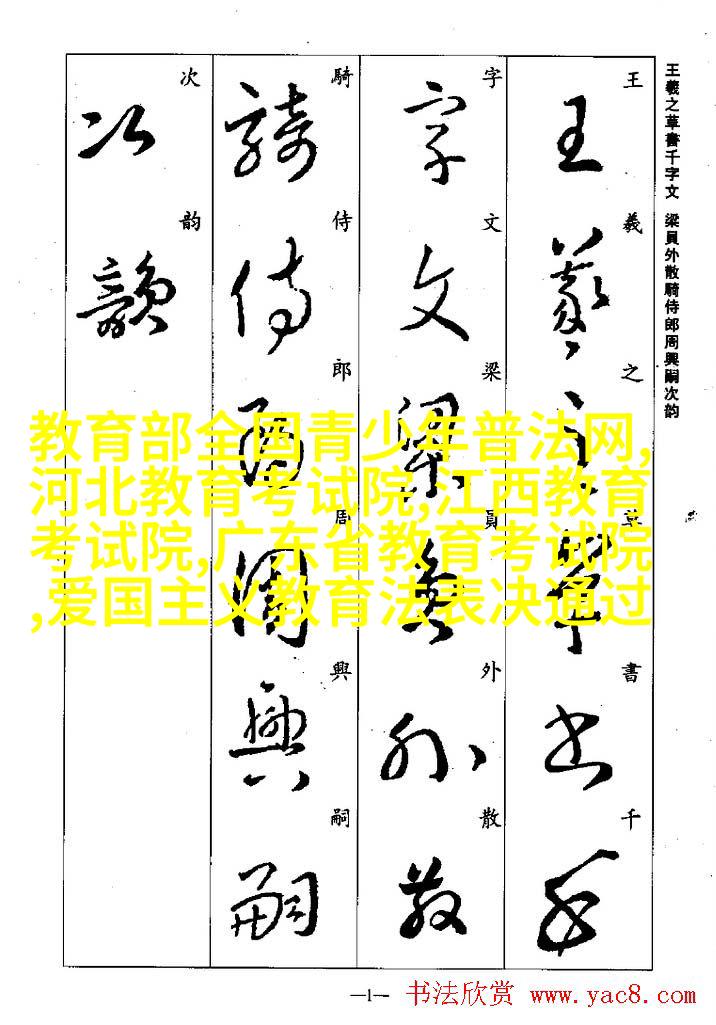 王羲之草書千字文 梁員外散騎侍郎周興嗣次韵
王羲之草書千
王羲之草書千
字文梁員外散
字文梁員外散
騎侍郎周興嗣
騎侍郎周興嗣
次韵
次韻
教育部全国青少年普法网,
河北教育考试院,江西教育
考试院,广东省教育考试院
,爱国主义教育法表决通过
—1—
书法欣赏 www.yac8.com